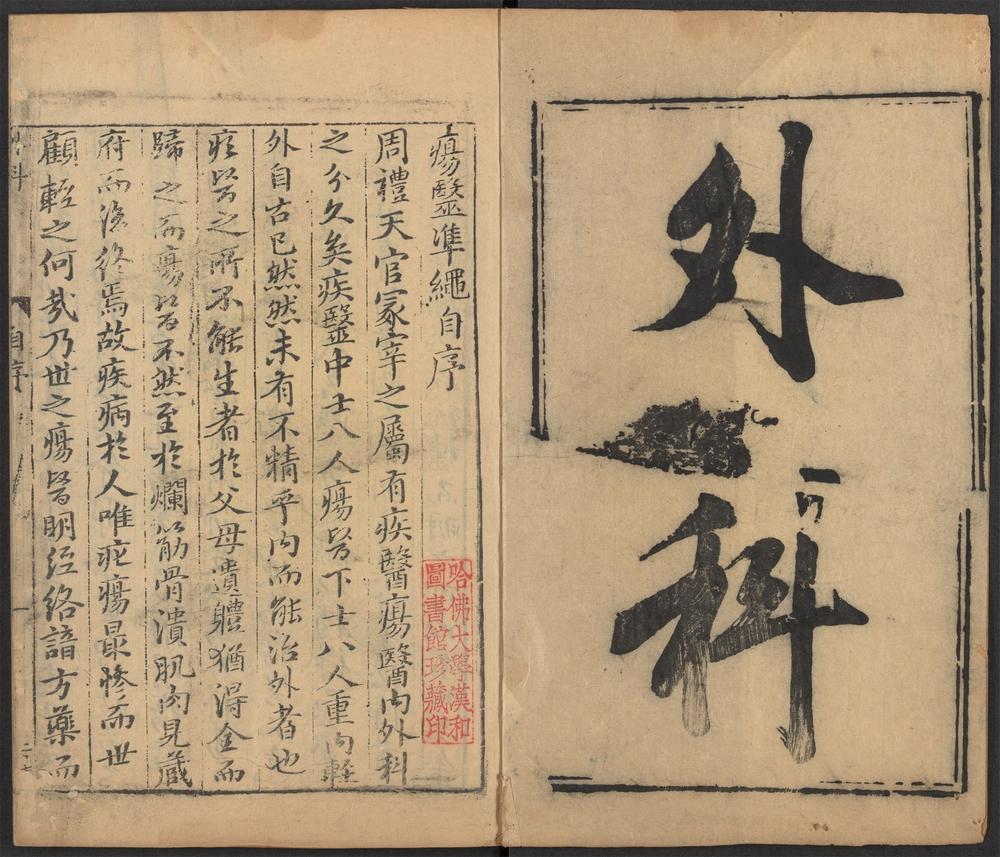 外科
瘍毉準繩自序
周禮天官冢宰之屬有疾醫瘍醫內外科
之分久矣疾毉中士八人瘍醫下士八人重內輕
外自古已然然未有不精乎內而能治外者也
疾醫之所不能生者於父母遺軆猶得全而
歸之而瘍醫不然至於爛筋骨潰肌肉見藏
府而後終焉故疾病於人唯疕瘍最慘而世
顧輕之何哉乃世之瘍醫明經絡諳方藥而
哈佛大學漢和
圖書館珍藏印
外科
自序
一